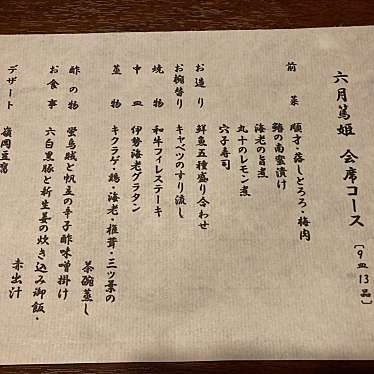 六月篤姫 会席コース〔9皿13品〕
前菜 順才・落しとろろ・梅肉
鱚の南蛮漬け
海老の旨煮
丸十のレモン煮
穴子寿司
お造り 鮮魚五種盛り合わせ
お椀替り キャベツのすり流し
焼物 和牛フィレステーキ
中皿 伊勢海老グラタン
蒸物 キクラゲ・鶏・海老・椎茸・三ツ葉の
茶碗蒸し
酢の物 蛍烏賊と帆立の辛子酢味噌掛け
お食事 六白黒豚と新生姜の炊き込み御飯・
赤出汁
デザート 嶺岡豆腐